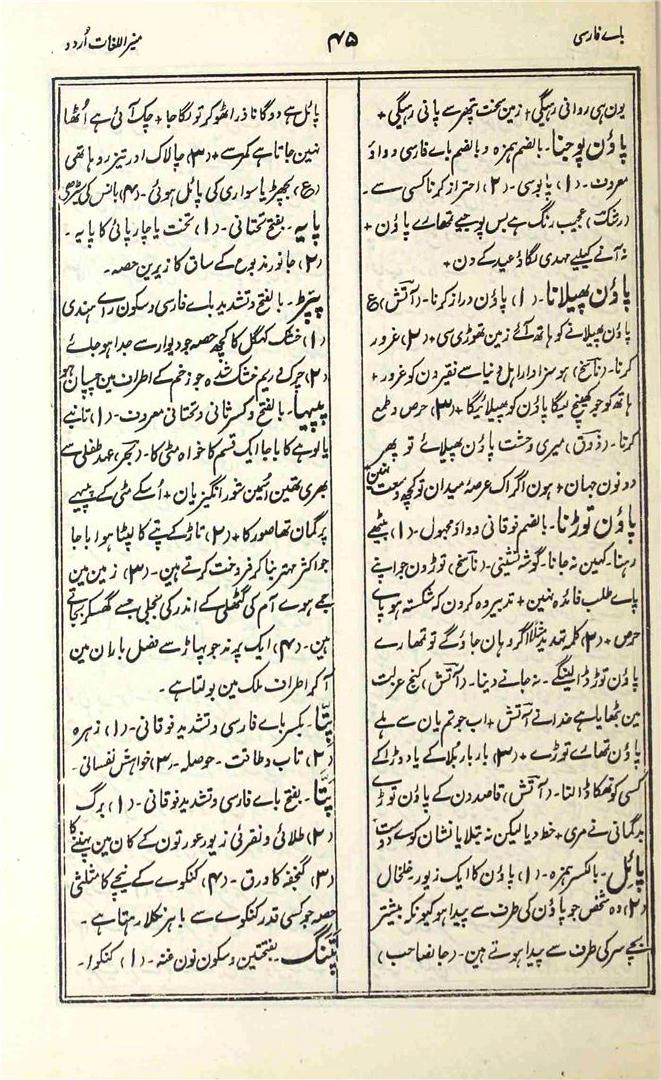 باے فارسی
۴۵
منیر اللغات اُردو
یون ہی روانی رہیگی + زمین سخت پتھر سے پانی رہیگی +
پاؤن پوجنا ۔ بالضم ہمزہ و بالضم باے فارسی و واؤ
معروف ۔ (۱) پابوسی ۔ (۲) احتراز کرنا کسی سے ۔
(رشک) عجیب رنگ ہے بس پوجیے تمھارے پاؤن +
نہ آنے کیلیے مہدی لگاؤ عید کے دن +
پاؤن پھیلانا ۔ (۱) پاؤن دراز کرنا ۔ (آتش) ع
پاؤن پھیلانے کو ہاتھ آئے زمین تھوڑی سی + (۲) غرور
کرنا ۔ (ناسخ) ہو سزاوار اہل دنیا سے فقیرون کو غرور +
ہاتھ کو جو کھینچ لیگا پاؤن کو پھیلائیگا + (۳) حرص و طمع
کرنا ۔ (ذوق) میری وحشت پاؤن پھیلائے تو پھر
دونون جہان + ہون اگر اک عرصۂ میدان تو کچھ وسعت نہین
پاؤن توڑنا ۔ بالضم فوقانی و واؤ مجہول ۔ (۱) بیٹھے
رہنا ۔ کہین نہ جانا ۔ گوشہ نشینی ۔ (ناسخ) توڑون جو اپنے
پاے طلب فائدہ نہین + تدبیر وہ کرون کہ شکستہ ہو پاے
حرص + (۲) کلمہ تہدید مثلاً اگر وہان جاؤگے تو تمھارے
پاؤن توڑ ڈالینگے ۔ نہ جانے دینا ۔ (آتش) کنج عزلت
مین بٹھایا ہے خدا نے آتش + اب جو تم یان سے ہلے
پاؤن تمھارے توڑے + (۳) بار بار بُلا کے یا دوڑا کے
کسی کو تھکا ڈالنا ۔ (آتش) قاصدون کے پاؤن توڑے
بدگمانی نے مری + خط دیا لیکن نہ بتلایا نشان کوے دوست
پائل ۔ بالکسر ہمزہ ۔ (۱) پاؤن کا ایک زیور خلخال
(۲) وہ شخص جو پاؤن کی طرف سے پیدا ہو کیونکہ بیشتر
بچے سر کی طرف سے پیدا ہوتے ہین ۔ (جانصاحب)
پائل ہے دوگانا ذرا ٹھوکر تو لگا جا + چک آئی ہے اُٹھا
نہین جاتا ہے کمر سے + (۳) چالاک اور تیز رو ہاتھی
(ع) بچھڑیا سواری کی پائل ہوئی ۔ (۴) بانس کی سیڑھی
پایہ ۔ بفتح تحتانی ۔ (۱) تخت یا چارپائی کا پایہ ۔
(۲) جانور مذبوح کے ساق کا زیرین حصہ ۔
پپڑ ۔ بالفتح و تشدید باے فارسی و سکون راے ہندی
(۱) خشک کہگل کا کچھ حصہ جو دیوار سے جدا ہو جائے
(۲) چرک ریم خشک شدہ جو زخم کے اطراف مین چسپان ہو
پپیہا ۔ بالفتح و کسر ثانی و تحتانی معروف ۔ (۱) تانبے
یا لوہے کا باجا ایک قسم کا خواہ مٹی کا ۔ (بحر) عہد طفلی سے
بھری تھین اُسمین شور انگیزیان + اُسکے مٹی کے پپیہے
پر گمان تھا صور کا + (۲) تاڑ کے پتے کا لپٹا ہوا باجا
جو اکثر مہتر بنا کر فروخت کرتے ہین ۔ (۳) زمین مین
جمے ہوے آم کی گٹھلی کے اندر کی بجلی جسے گھسکر بجاتے
ہین ۔ (۴) ایک پرند جو پہاڑ سے فصل باران مین
آ کر اطراف ملک مین بولتا ہے ۔
پِتّا ۔ بکسر باے فارسی و تشدید فوقانی ۔ (۱) زہرہ
(۲) تاب و طاقت ۔ حوصلہ ۔ (۳) خواہش نفسانی ۔
پَتّا ۔ بفتح باے فارسی و تشدید فوقانی ۔ (۱) برگ
(۲) طلائی و نقرئی زیور عورتون کے کان مین پہننے کا
(۳) گنجفہ کا ورق ۔ (۴) کنکوے کے نیچے کا مثلثی
حصہ جو کسی قدر کنکوے سے باہر نکلا رہتا ہے ۔
پتنگ ۔ بفتحتین و سکون نون غنہ ۔ (۱) کنکوا ۔